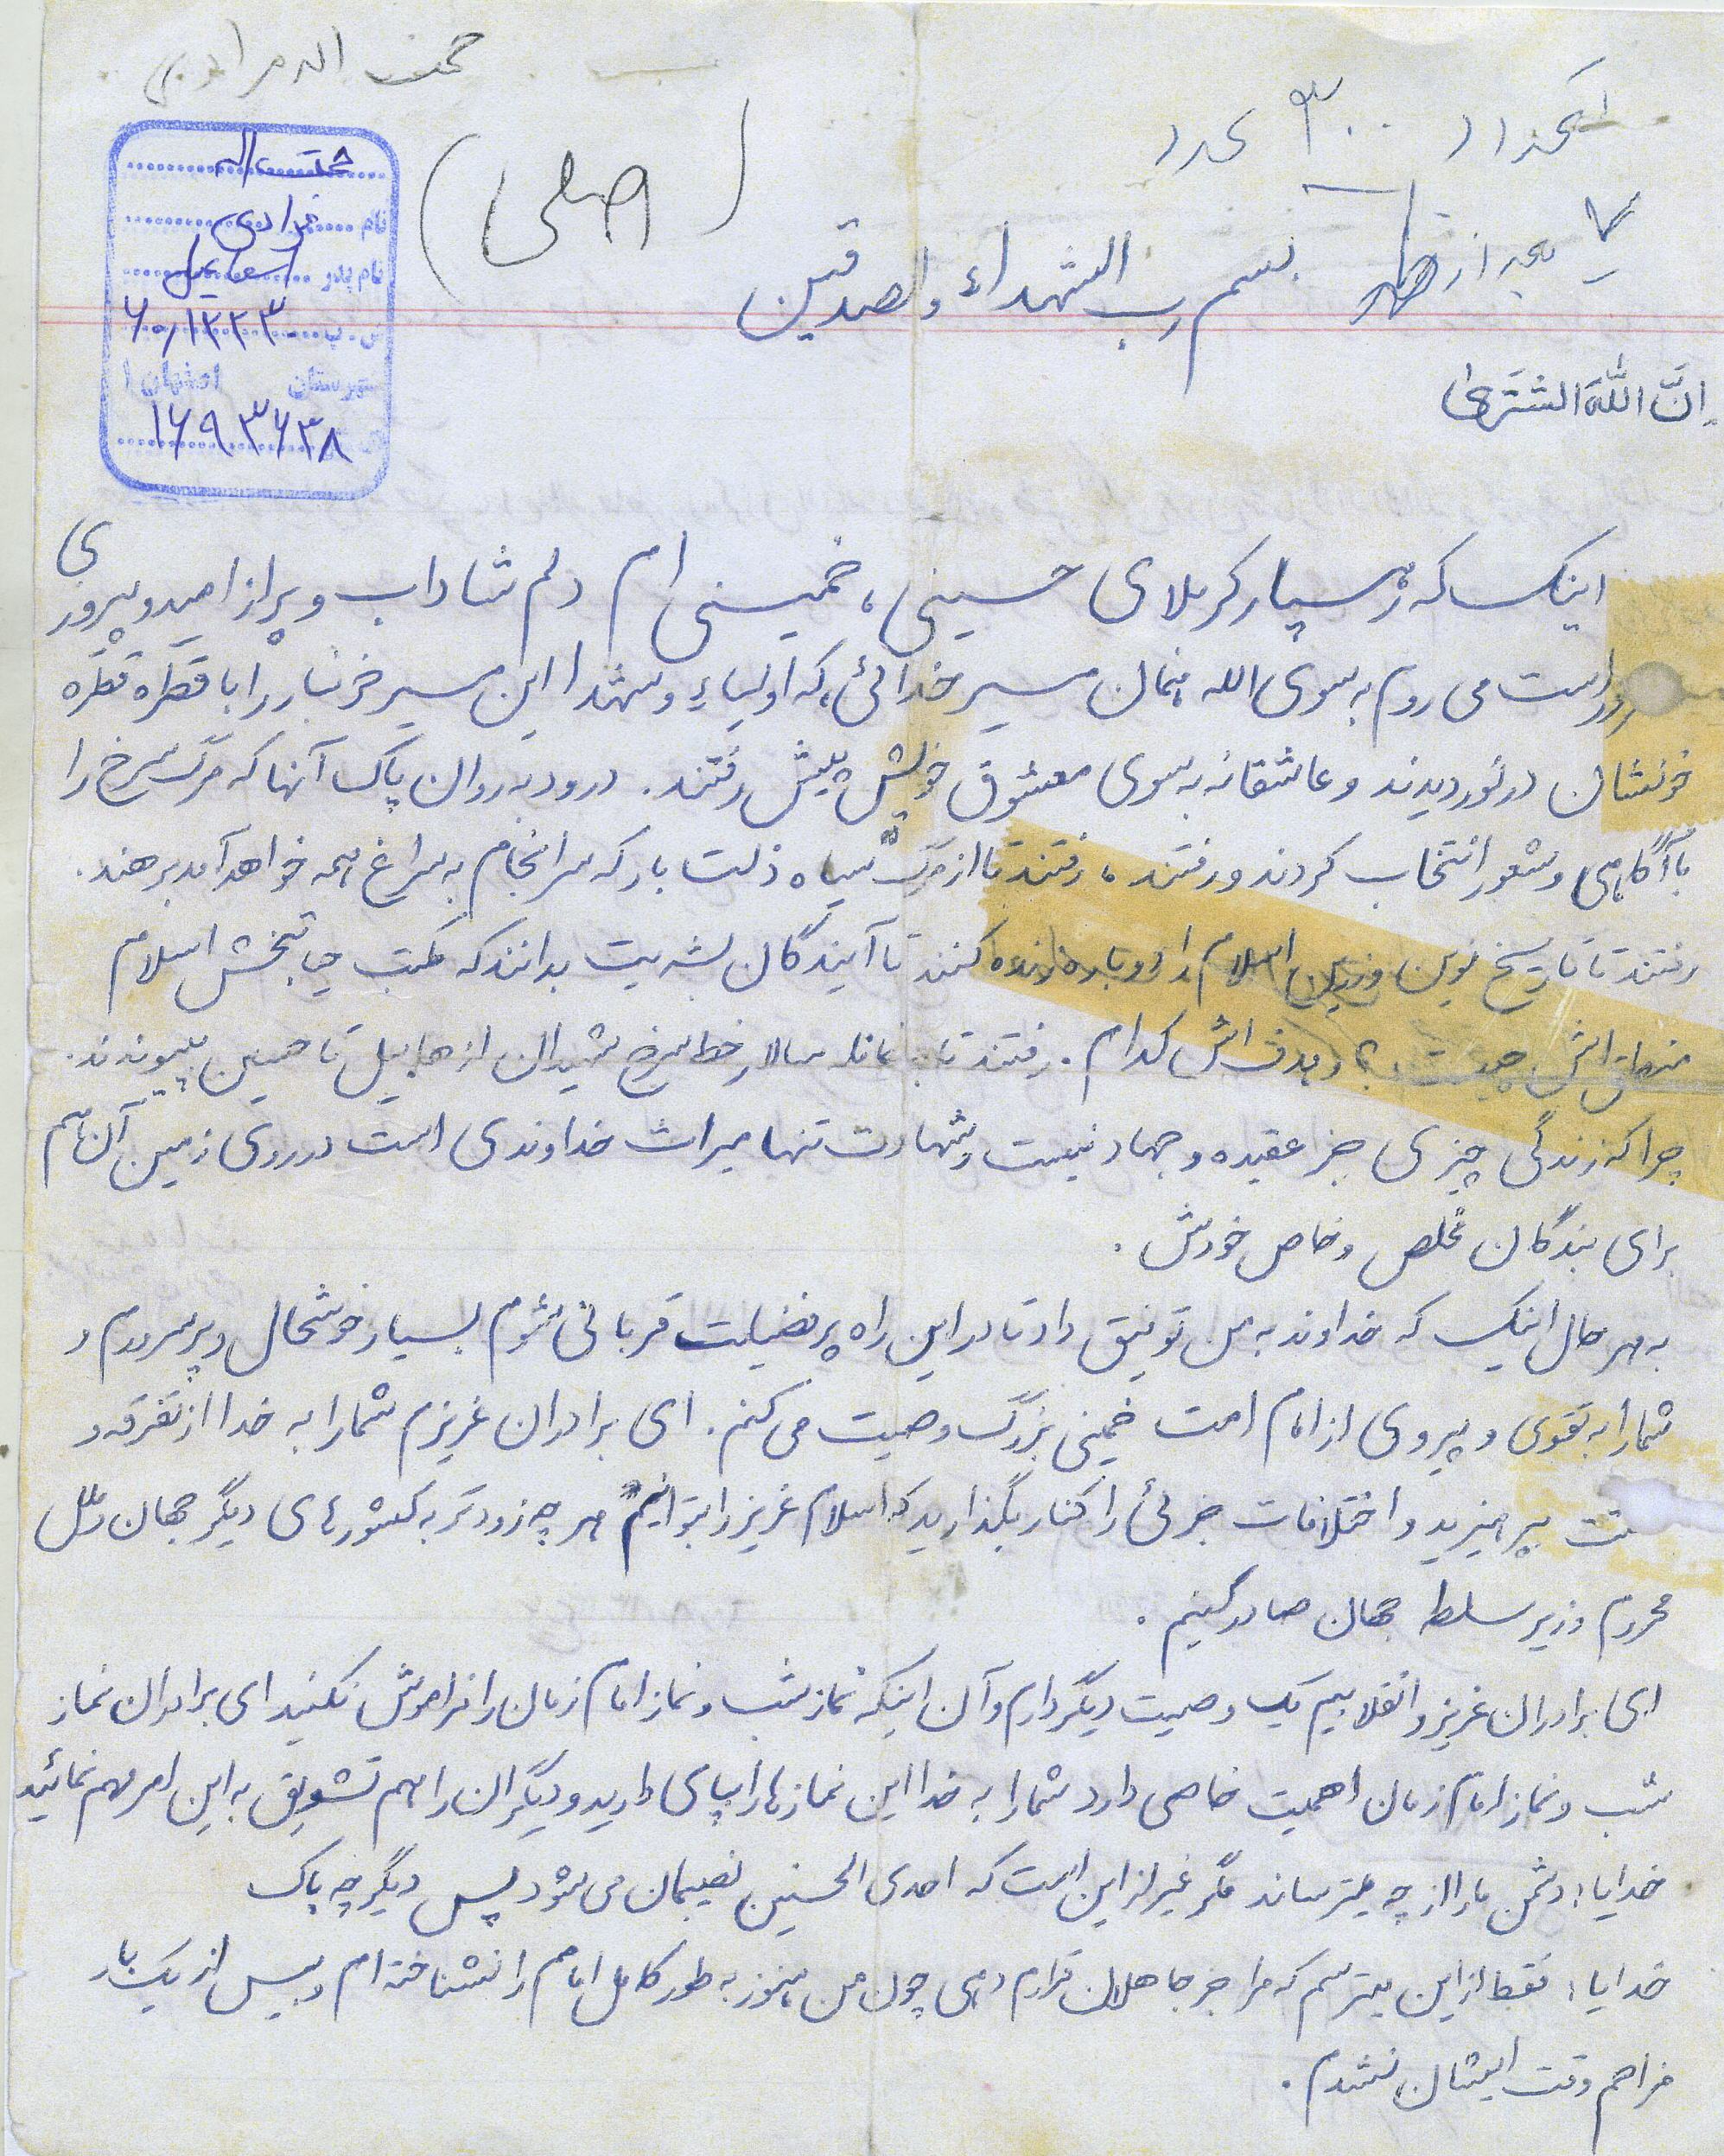 حجت اله مرادی
تعداد ۳۰۰ عدد
(اصلی)
بعد از ظهر
بسم رب الشهداء والصدقین
اِنَّ اللّهَ اشتَرىٰ
حجت اله
نام مرادی
نام پدر اسماعیل
ش.پ ۶۰/۱۲۳۳۰
شهرستان اصفهان ۱
۱۶۹۳۶۳۸
اینک که رهسپار کربلای حسینی، خمینی ام دلم شاداب و پر از امید و پیروزی
است می روم به سوی الله همان مسیر خدائی، که اولیاء و شهدا این مسیر خونبار را با قطره قطره
خونشان درنوردیدند و عاشقانه به سوی معشوق خویش پیش رفتند. درود به روان پاک آنها که مرگ سرخ را
با آگاهی و شعور انتخاب کردند و رفتند، رفتند تا از مرگ سیاه ذلت بار که سرانجام به سراغ همه خواهد آمد برهند.
رفتند تا تاریخ نوین و زرین اسلام را دوباره زنده کنند تا آیندگان بشریت بدانند که مکتب حیاتبخش اسلام
منطق اش چیست؟ و هدف اش کدام. رفتند تا به قافله سالار خط سرخ شهیدان از هابیل تا حسین بپیوندند.
چرا که زندگی چیزی جز عقیده و جهاد نیست و شهادت تنها میراث خداوندی است در روی زمین آن هم
برای بندگان مخلص و خاص خودش.
به هر حال اینک که خداوند به من توفیق داد تا در این راه پر فضیلت قربانی شوم بسیار خوشحال و پر سرورم و
شما را به تقوی و پیروی از امام امت خمینی بزرگ وصیت می کنم. ای برادران عزیزم شما را به خدا از تفرقه و
بپرهیزید و اختلافات جزئی را کنار بگذارید که اسلام عزیز را بتوانیم هر چه زودتر به کشورهای دیگر جهان و ملل
محروم و زیر سلطه جهان صادر کنیم.
ای برادران عزیز و انقلابیم یک وصیت دیگر دارم و آن اینکه نماز شب و نماز امام زمان را فراموش نکنید ای برادران نماز
شب و نماز امام زمان اهمیت خاصی دارد شما را به خدا این نمازها را بپای دارید و دیگران را هم تشویق به این امر مهم نمائید
خدایا: دشمن ما را از چه میترساند مگر غیر از این است که احدی الحسنین نصیبمان می شود پس دیگر چه باک
خدایا: فقط از این میترسم که مرا جز جاهلان قرارم دهی چون من هنوز به طور کامل امامم را نشناخته ام و بیش از یک بار
فراهم وقت ایشان نشدم.